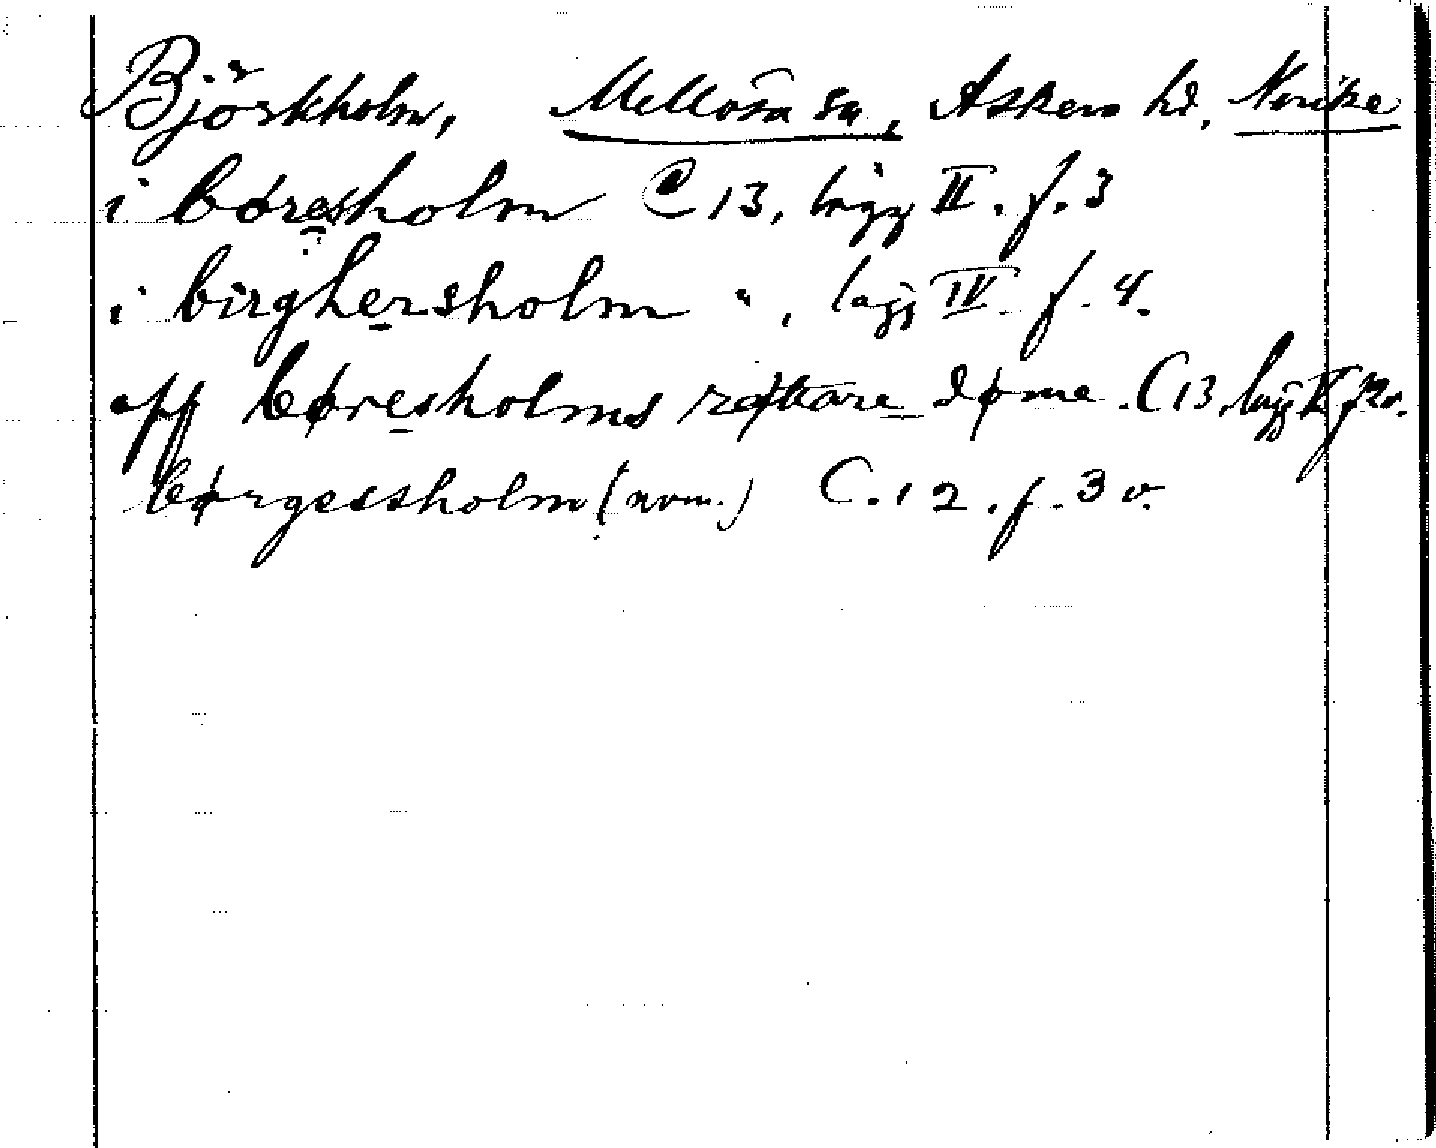 Björkholm, Mellösa sn, Askers hd, Nerike
i børesholm C 13, lägg II. f. 3
i birghersholm ", lägg IV. f. 4.
aff børesholms rættare døme. C 13, lägg II f. 2v.
børgessholm (nom.) C. 12. f. 3 v.